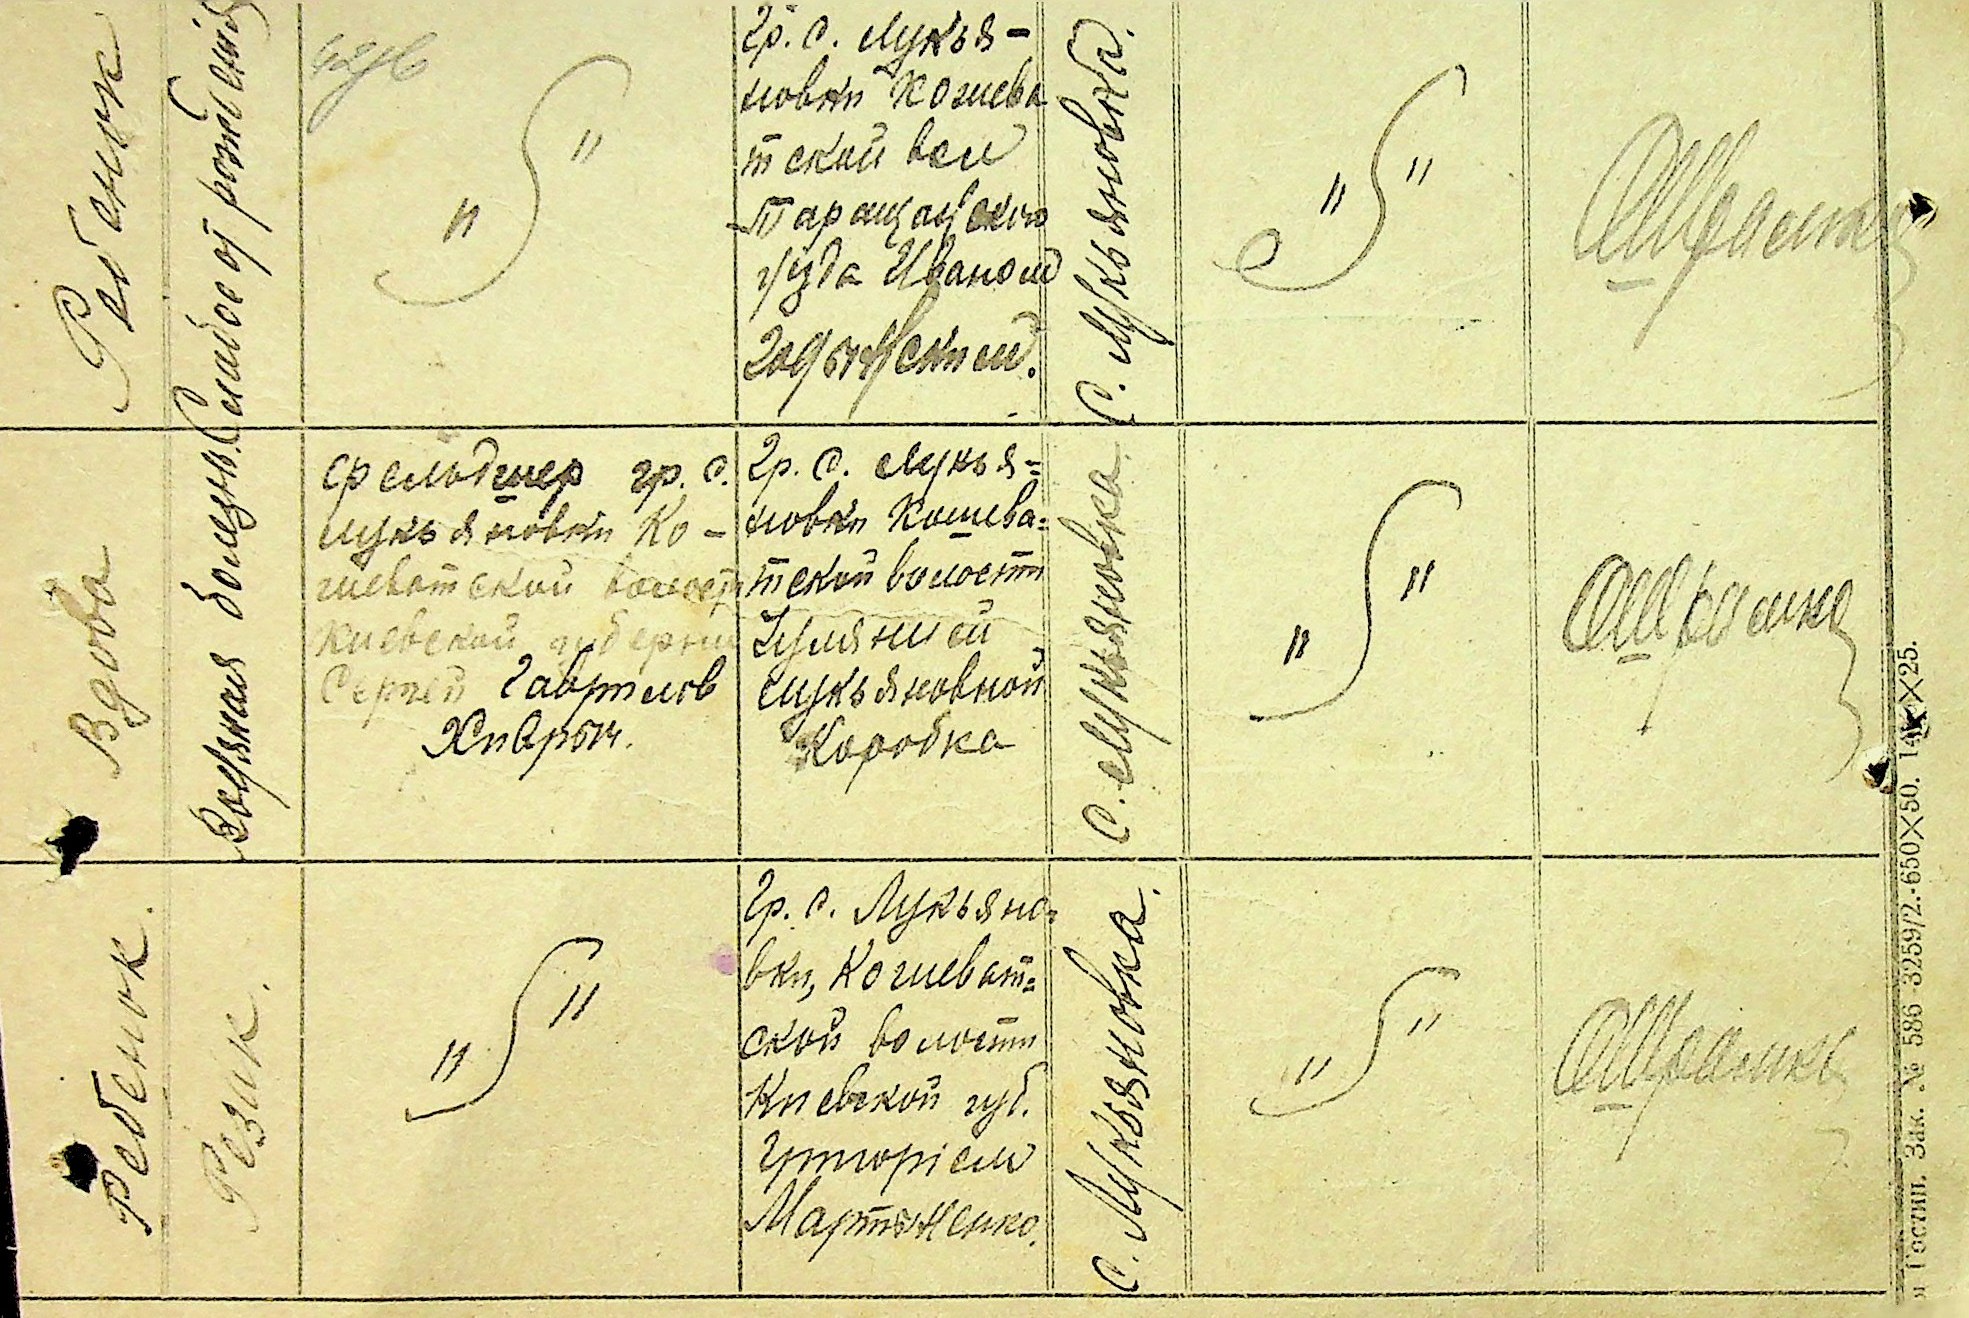 Ребенок
Слабое от рождения
Гр. с. Лукья-
новки Кошева
тской вол
Таращанского
уезда Иваном
с. Лукьяновка.
Вдова
болезнь.
фельдшер гр. с.
Лукьяновки Ко-
шеватской волост
Киевской губерни
Сергей Гаврилов
Гр. с. Лукья=
новки Кошева=
тской волости
Лукьяновной
Коробка
с. Лукьяновка.
Ребенок.
Гр. с. Лукьяно=
вки, Кошеват=
ской волости
Киевской губ.
Григоріем
Мартыненко.
с. Лукьяновка.
и Гостин. Зак. № 586 3259/2.-650×50. 14 × ×25.